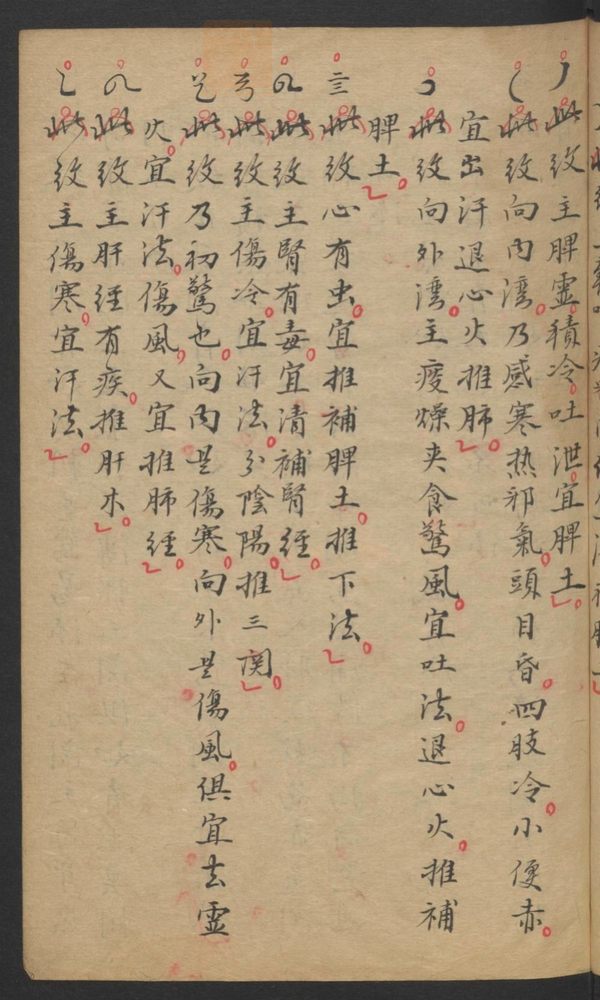 此紋主脾霊積冷吐泄宜脾土
此紋向内湾乃感寒热邪氣頭目昏四肢冷小便赤
宜出汗退心火推肺
此紋向外湾主痰燥夹食驚風宜吐法退心火推補
脾土
此紋心有虫宜推補脾土推下法
此紋主腎有毒宜清補腎経
此紋主傷冷宜汗法分陰陽推三関
此紋乃初驚也向内是傷寒向外是傷風俱宜去霊
火宜汗法傷風又宜推肺経
此紋主肝経有疾推肝木
此紋主傷寒宜汗法